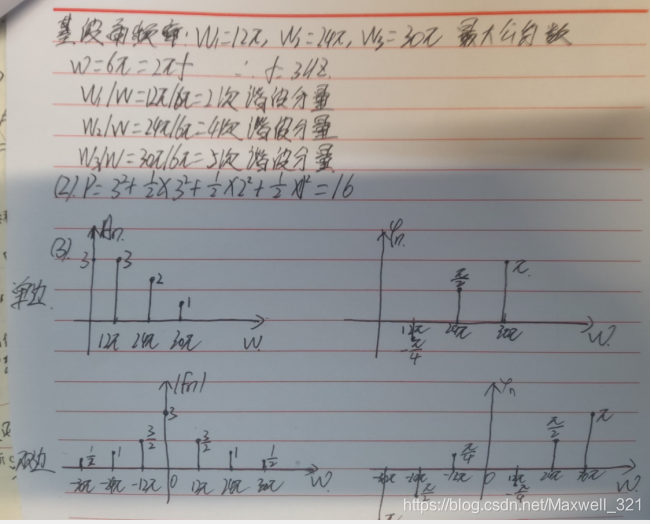 基波角频率: W₁=12π, W₂=24π, W₃=30π 最大公约数
W=6π=2πf ∴f=3HZ.
W₁/W=12π/6π=2次谐波分量
W₂/W=24π/6π=4次谐波分量
W₃/W=30π/6π=5次谐波分量
(2). P=3²+½×3²+½×2²+½×1²=16
(3).
单边
An.
3 3 2 1
12π 24π 30π W.
φn.
π/2 π
12π 24π 30π W.
-π/4
双边
|Fn|
3
1/2 1 3/2 3/2 1 1/2
-30π -24π -12π 0 12π 24π 30π W.
φn
π/4 π/2 π
-30π -24π -12π 0 12π 24π 30π W.
-π/2 -π/4
https://blog.csdn.net/Maxwell_321